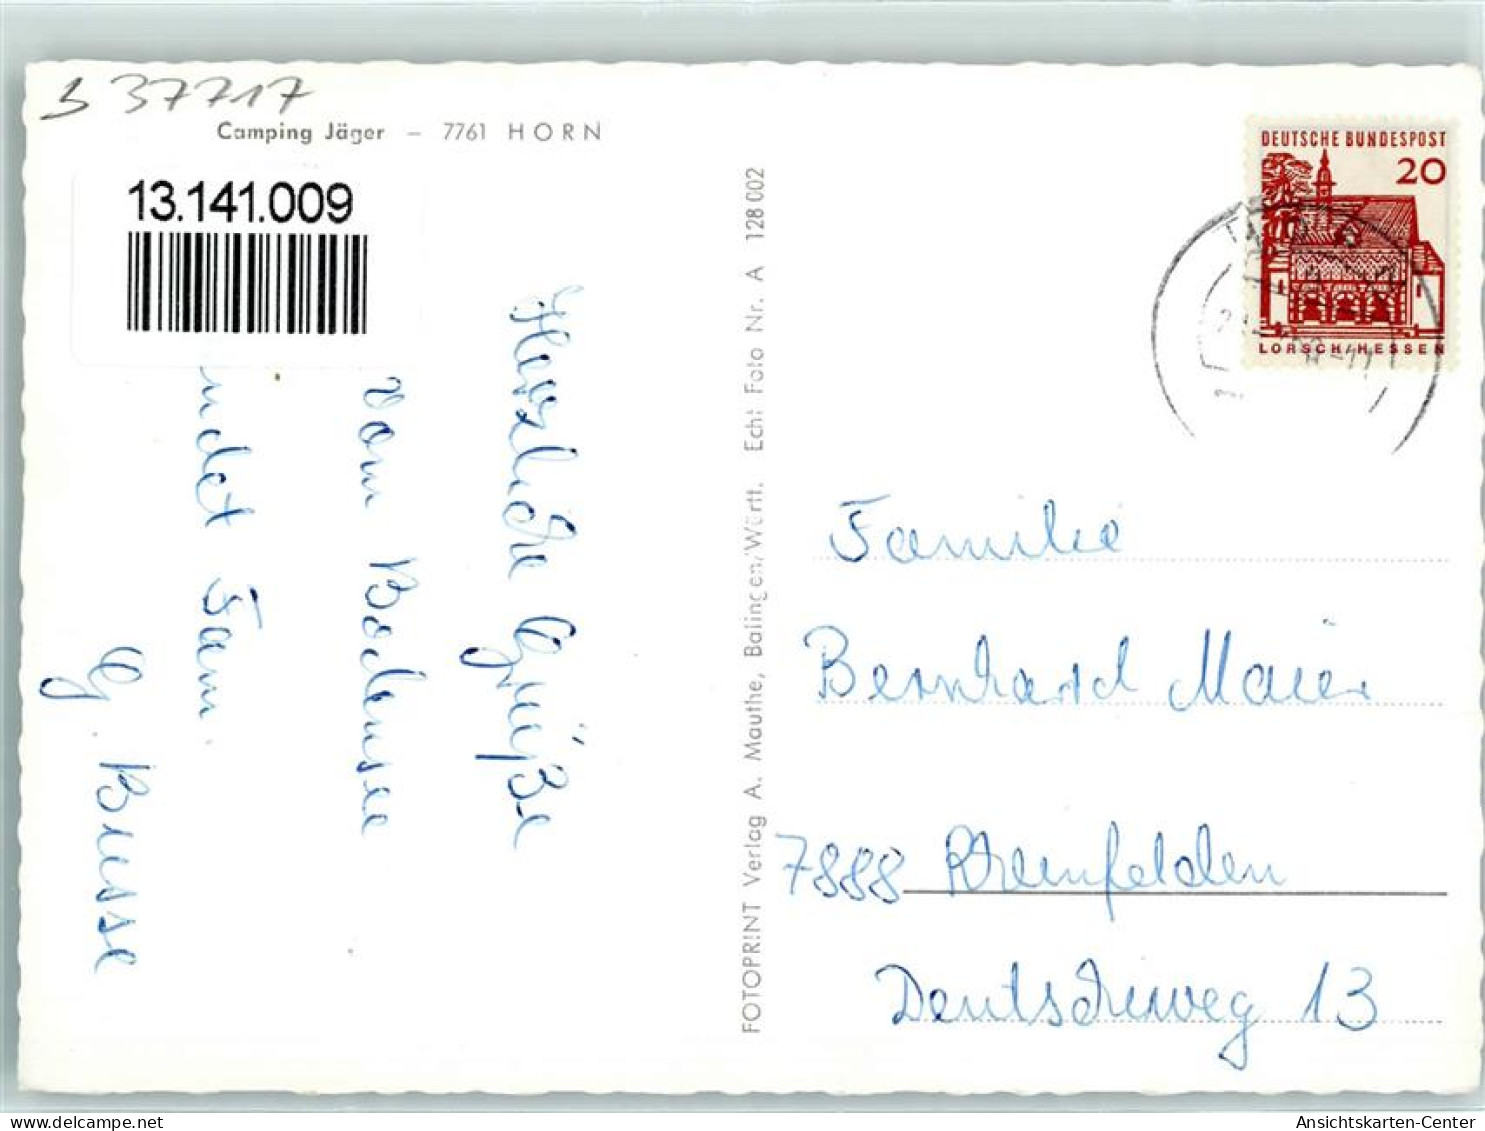 S 37717
Camping Jäger – 7761 HORN
13.141.009
Herzliche Grüße
vom Bodensee
Fam.
G. Busse
FOTOPRINT Verlag A. Mauthe, Balingen/Württ. Echt Foto Nr. A 128 002
DEUTSCHE BUNDESPOST
20
LORSCH/HESSEN
Familie
Bernhard Maier
7888 Rheinfelden
13
www.ansichtskarten-center.de
Ansichtskarten-Center